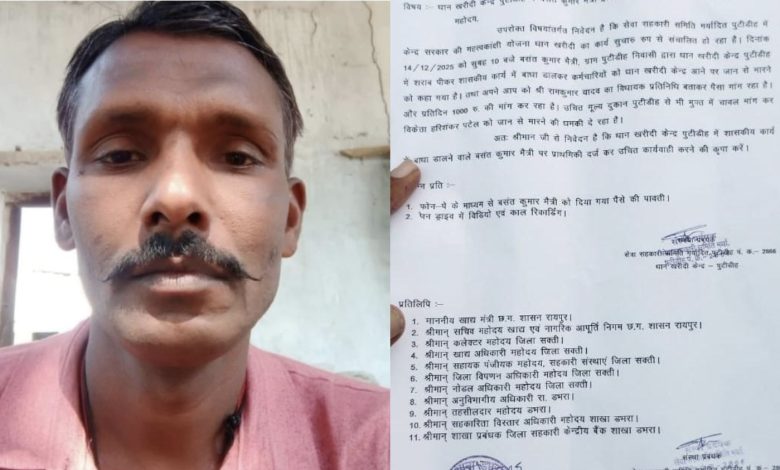 विषय :- धान खरीदी केन्द्र पुटीडीह
महोदय,
उपरोक्त विषयांतर्गत निवेदन है कि सेवा सहकारी समिति मर्यादित पुटीडीह में
केन्द्र सरकार की महत्वकांक्षी योजना धान खरीदी का कार्य सुचारू रुप से संचालित हो रहा है। दिनांक
14/12/2025 को सुबह 10 बजे बसंत कुमार मैत्री, ग्राम पुटीडीह निवासी द्वारा धान खरीदी केन्द्र पुटीडीह
में शराब पीकर शासकीय कार्य में बाधा डालकर कर्मचारियों को धान खरीदी केन्द्र आने पर जान से मारने
को कहा गया है। तथा अपने आप को श्री रामकुमार यादव का विधायक प्रतिनिधि बताकर पैसा मांग रहा है।
और प्रतिदिन 1000 रु. की मांग कर रहा है। उचित मूल्य दुकान पुटीडीह से भी मुफ्त में चावल मांग कर
विक्रेता हरिशंकर पटेल को जान से मारने की धमकी दे रहा है।
अतः श्रीमान जी से निवेदन है कि धान खरीदी केन्द्र पुटीडीह में शासकीय कार्य
बाधा डालने वाले बसंत कुमार मैत्री पर प्राथमिकी दर्ज कर उचित कार्यवाही करने की कृपा करें।
प्रति :-
1. फोन-पे के माध्यम से बसंत कुमार मैत्री को दिया गया पैसे की पावती।
2. पेन ड्राइव में विडियो एवं काल रिकार्डिंग।
सेवा सहकारी समिति मर्यादित पुटीडीह पं. क.- 2866
धान खरीदी केन्द्र - पुटीडीह
प्रतिलिपि :-
1. माननीय खाद्य मंत्री छ.ग. शासन रायपुर।
2. श्रीमान् सचिव महोदय खाद्य एवं नागरिक आपूर्ति निगम छ.ग. शासन रायपुर।
3. श्रीमान् कलेक्टर महोदय जिला सक्ती।
4. श्रीमान् खाद्य अधिकारी महोदय जिला सक्ती।
5. श्रीमान् सहायक पंजीयक महोदय, सहकारी संस्थाएं जिला सक्ती।
6. श्रीमान् जिला विपणन अधिकारी महोदय जिला सक्ती।
7. श्रीमान् नोडल अधिकारी महोदय जिला सक्ती।
8. श्रीमान् अनुविभागीय अधिकारी रा. डभरा।
9. श्रीमान् तहसीलदार महोदय डभरा।
10. श्रीमान् सहकारिता विस्तार अधिकारी महोदय शाखा डभरा।
11. श्रीमान् शाखा प्रबंधक जिला सहकारी केन्द्रीय बैंक शाखा डभरा।
संस्था प्रबंधक